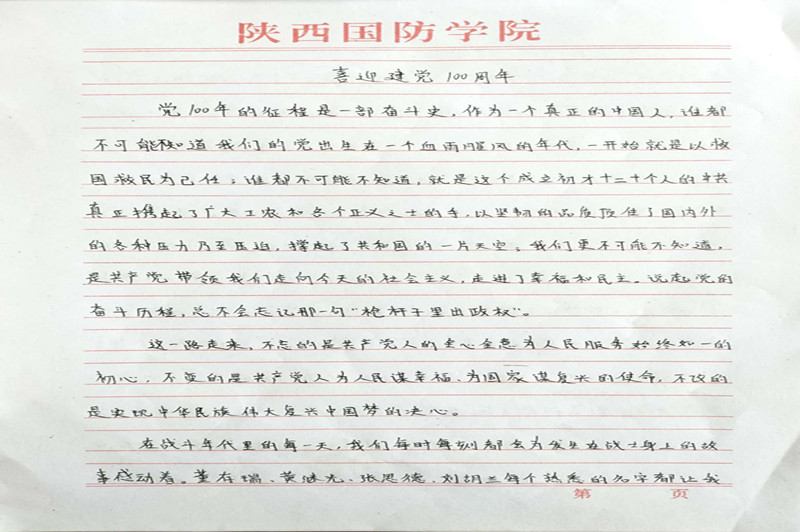 陕西国防学院
喜迎建党100周年
党100年的征程是一部奋斗史,作为一个真正的中国人,谁都
不可能不知道我们的党出生在一个血雨腥风的年代,一开始就是以救
国救民为己任;谁都不可能不知道,就是这个成立初才十二十个人的中共
真正携起了广大工农和各个正义之士的手,以坚韧的品质顶住了国内外
的各种压力乃至压迫,撑起了共和国的一片天空;我们更不可能不知道,
是共产党带领我们走向今天的社会主义,走进了幸福和民主。说起党的
奋斗历程,总不会忘记那一句“枪杆子里出政权”。
这一路走来,不忘的是共产党人的全心全意为人民服务始终如一的
初心,不变的是共产党人为人民谋幸福、为国家谋复兴的使命,不改的
是实现中华民族伟大复兴中国梦的决心。
在战斗年代里的每一天,我们每时每刻都会为发生在战士身上的故
事感动着。董存瑞、黄继光、张思德、刘胡兰每个熟悉的名字都让我
第 页